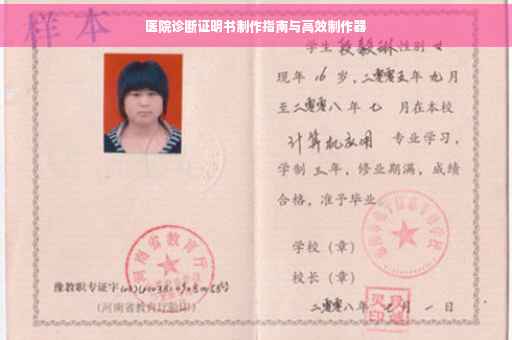 医院诊断证明书制作指南与高效制作器
样本
学生段毅琳性别女
现年16岁，二零零五年九月
至二零零八年七月在本校
计算机应用 专业学习，
学制三年，修业期满，成绩
合格，准予毕业
学校（章）
校长（章）
二零零八年七月一日
河南省教育厅
豫教职专证字
（河南省教育厅验印）